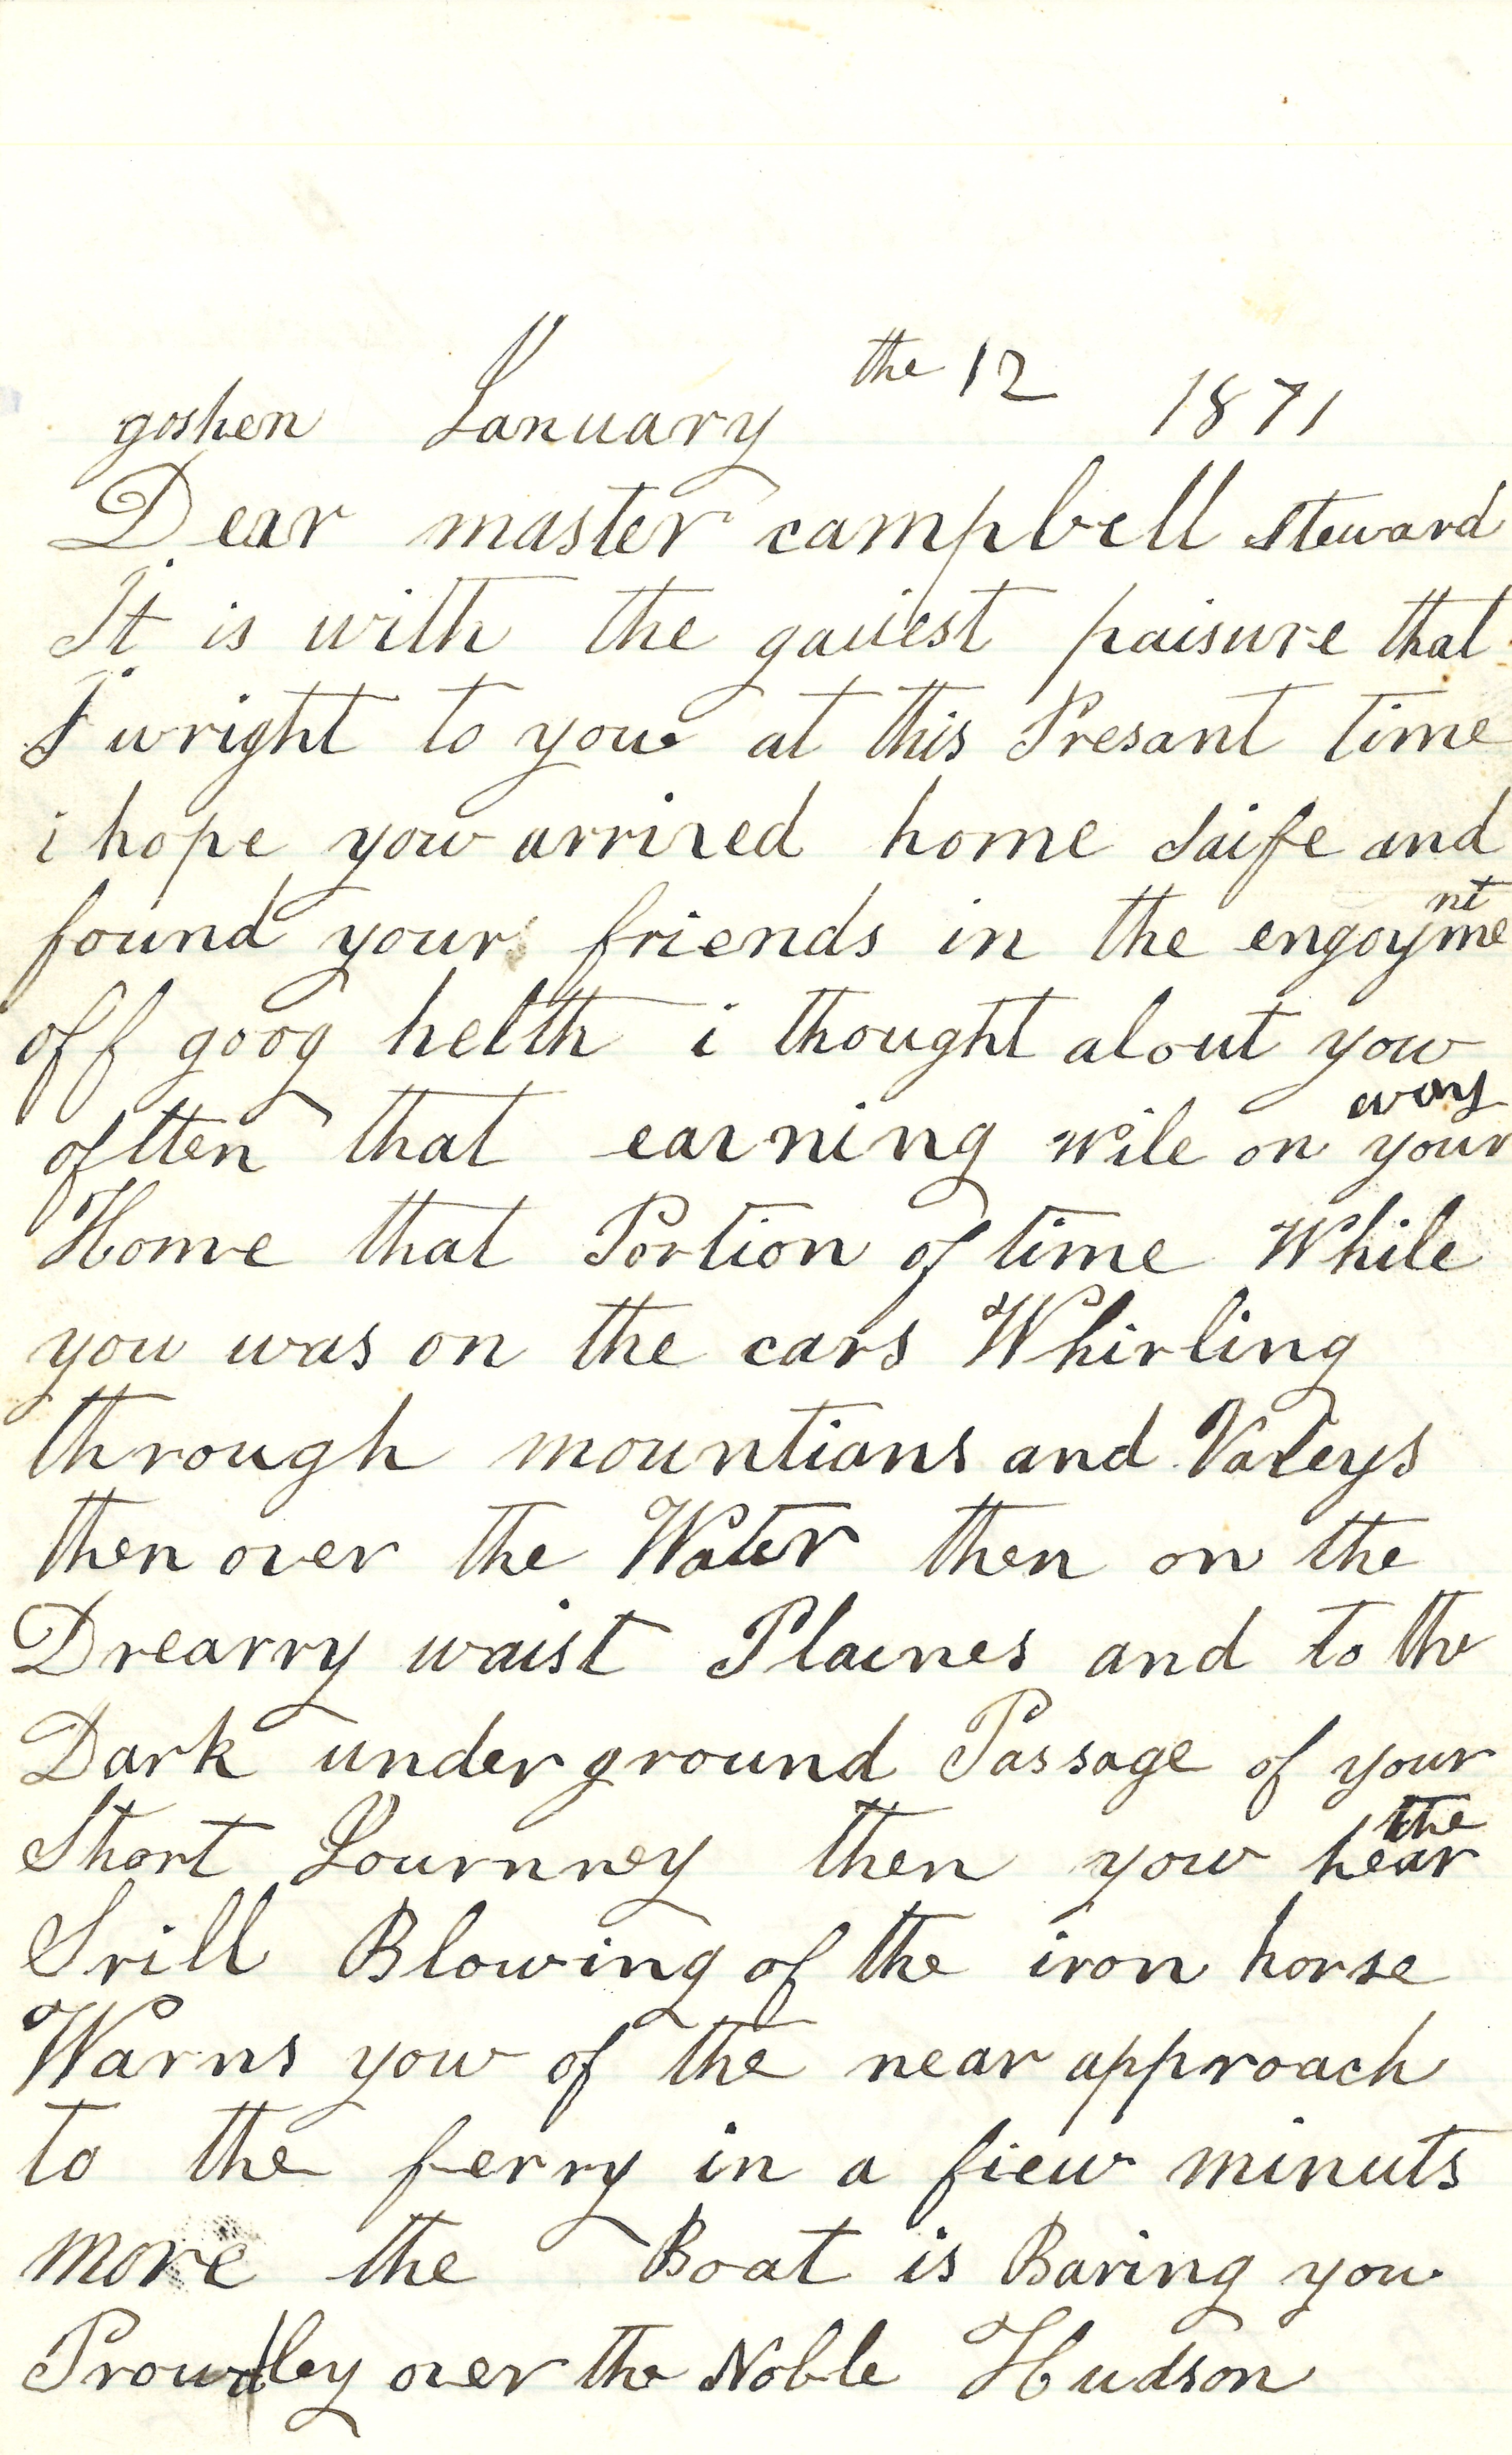 goshen January the 12 1871
Dear master campbell steward
It is with the gaiiest paisure that
I wright to you at this Presant time
i hope you arrived home saife and
found your friends in the engoyment
off goog helth i thought about you
often that evening wile on your way
Home that Portion of time While
you was on the cars Whirling
through mountians and Valeys
then over the Water then on the
Drearry waist Plaines and to the
Dark underground Passage of your
Short Journney then you hear the
Srill Blowing of the iron horse
Warns you of the near approach
to the ferry in a fiew minuts
more the Boat is Baring you
Proudley over the Noble Hudson